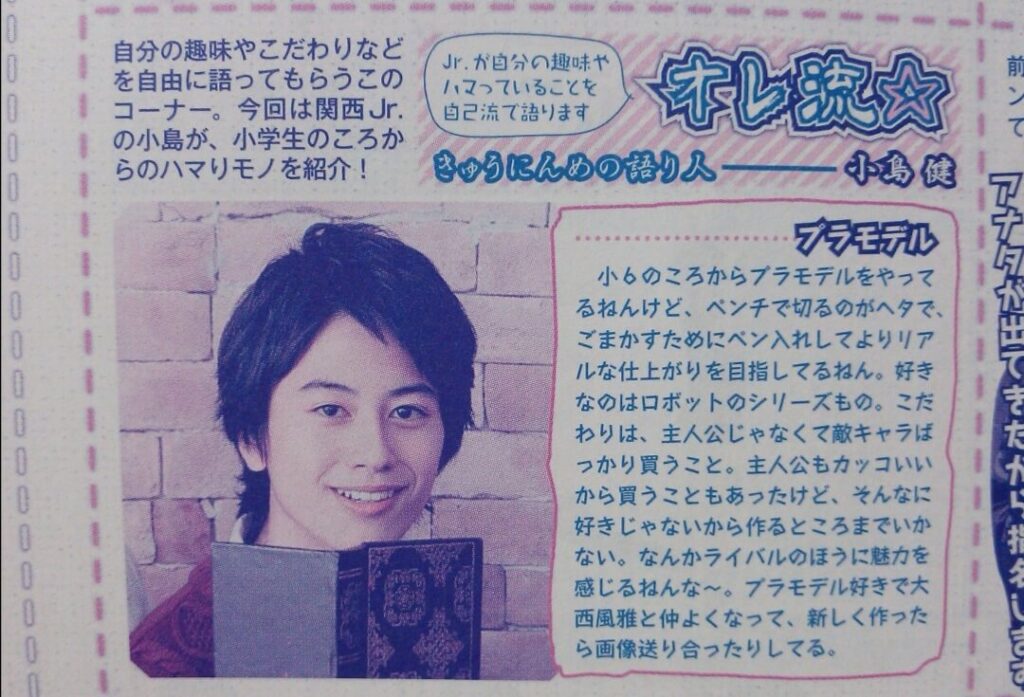 自分の趣味やこだわりなど
を自由に語ってもらうこの
コーナー。今回は関西Jr.
の小島が、小学生のころか
らのハマりモノを紹介！
Jr.が自分の趣味や
ハマっていることを
自己流で語ります
オレ流☆
きゅうにんめの語り人――小島 健
プラモデル
小6のころからプラモデルをやって
るねんけど、ペンチで切るのがヘタで、
ごまかすためにペン入れしてよりリア
ルな仕上がりを目指してるねん。好き
なのはロボットのシリーズもの。こだ
わりは、主人公じゃなくて敵キャラば
っかり買うこと。主人公もカッコいい
から買うこともあったけど、そんなに
好きじゃないから作るところまでいか
ない。なんかライバルのほうに魅力を
感じるねんな〜。プラモデル好きで大
西風雅と仲よくなって、新しく作った
ら画像送り合ったりしてる。
前
ンて
アナタが出てきたから指名します